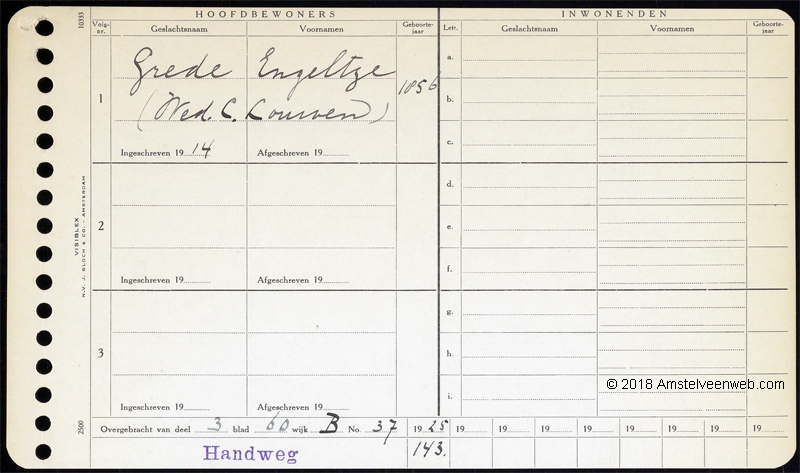 HOOFDBEWONERS INWONENDEN
Volg-nr. Geslachtsnaam Voornamen Geboorte-jaar Letr. Geslachtsnaam Voornamen Geboorte-jaar
10333
1 Grede Engeltje 1856
(Wed. C. Kouwen)
Ingeschreven 19 14 Afgeschreven 19
a.
b.
c.
2
Ingeschreven 19 Afgeschreven 19
d.
e.
f.
3
Ingeschreven 19 Afgeschreven 19
g.
h.
i.
VISIBLEX
N.V. J. BLOCH & CO. - AMSTERDAM
2500
© 2018 Amstelveenweb.com
Overgebracht van deel 3 blad 60 wijk B No. 37 19 25 19 19 19 19 19 19 19 19
Handweg 143.